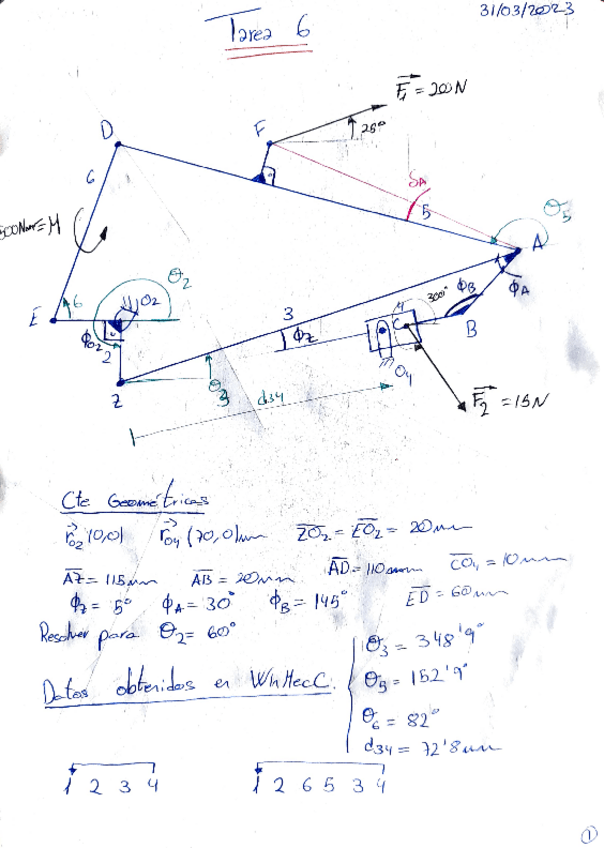 31/03/2023
Tarea 6
F₁ = 200N
25°
D
F
6
δA
5
θ5
500Nmm = M
A
θ2
O2
E
6
3
4
300°
φB
φA
φO2
2
φZ
C
B
Z
θ3
d34
O4
F₂ = 15N
Cte. Geométricas
r O2 (0,0) r O4 (70,0)mm ZO2 = EO2 = 20mm
AZ = 115mm AB = 20mm AD = 110mm CO4 = 10mm
φZ = 5° φA = 30° φB = 145° ED = 60mm
Resolver para θ2 = 60°
θ3 = 348'9°
Datos obtenidos en WinMecC.
θ5 = 152'9°
θ6 = 82°
d34 = 72'8mm
1 2 3 4
1 2 6 5 3 4
1